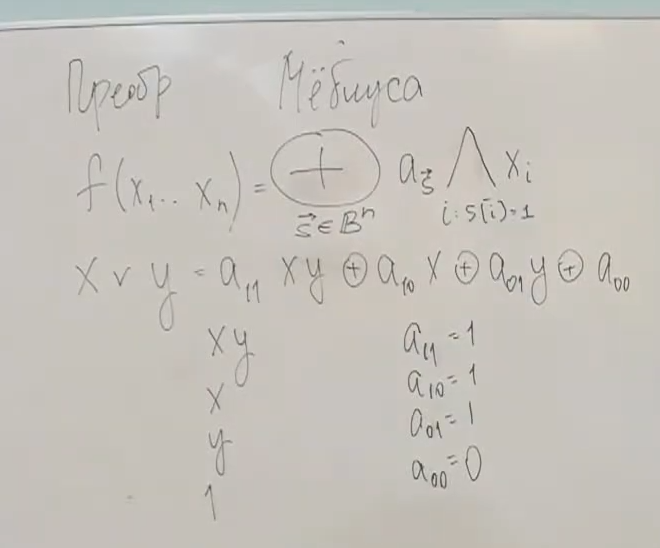 Преобр Мёбиуса
f(x₁... xₙ) = ⊕ a_s⃗ ⋀ xᵢ
s⃗ ∈ Bⁿ i: s[i]=1
x ∨ y = a₁₁ xy ⊕ a₁₀ x ⊕ a₀₁ y ⊕ a₀₀
xy a₁₁ = 1
x a₁₀ = 1
y a₀₁ = 1
1 a₀₀ = 0